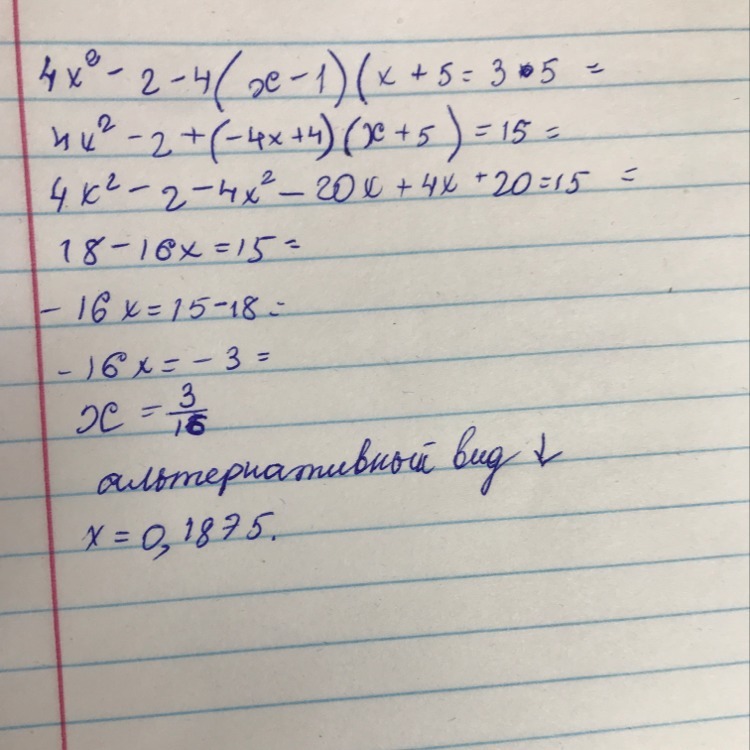 4x² - 2 - 4(x - 1)(x + 5 = 3 • 5 =
4x² - 2 + (-4x+4)(x+5) = 15 =
4x² - 2 - 4x² - 20x + 4x + 20 = 15 =
18 - 16x = 15 =
- 16x = 15 - 18 =
- 16x = - 3 =
x = 3/16
альтернативный вид ↓
x = 0,1875.